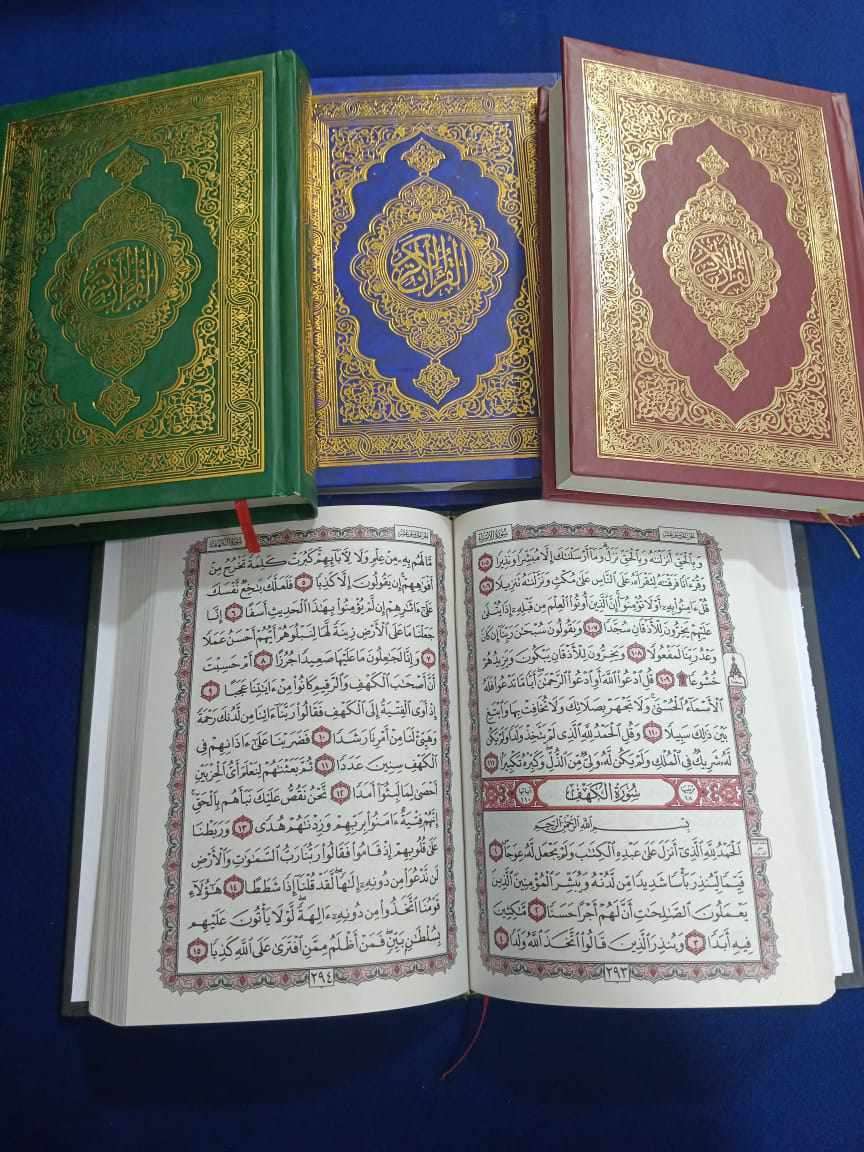 القرآن الكريم
القرآن الكريم
القرآن الكريم
الجزء الخامس عشر
سورة الإسراء
وَبِٱلۡحَقِّ أَنزَلۡنَٰهُ وَبِٱلۡحَقِّ نَزَلَۗ وَمَآ أَرۡسَلۡنَٰكَ إِلَّا مُبَشِّرٗا وَنَذِيرٗا ١٠٥
وَقُرۡءَانٗا فَرَقۡنَٰهُ لِتَقۡرَأَهُۥ عَلَى ٱلنَّاسِ عَلَىٰ مُكۡثٖ وَنَزَّلۡنَٰهُ تَنزِيلٗا ١٠٦
قُلۡ ءَامِنُواْ بِهِۦٓ أَوۡ لَا تُؤۡمِنُوٓاْۚ إِنَّ ٱلَّذِينَ أُوتُواْ ٱلۡعِلۡمَ مِن قَبۡلِهِۦٓ إِذَا يُتۡلَىٰ
عَلَيۡهِمۡ يَخِرُّونَۤ لِلۡأَذۡقَانِۤ سُجَّدٗاۤ ١٠٧ وَيَقُولُونَ سُبۡحَٰنَ رَبِّنَآ إِن كَانَ
وَعۡدُ رَبِّنَا لَمَفۡعُولٗا ١٠٨ وَيَخِرُّونَ لِلۡأَذۡقَانِ يَبۡكُونَ وَيَزِيدُهُمۡ
خُشُوعٗا۩ ١٠٩ قُلِ ٱدۡعُواْ ٱللَّهَ أَوِ ٱدۡعُواْ ٱلرَّحۡمَٰنَۖ أَيّٗا مَّا تَدۡعُواْ فَلَهُ
ٱلۡأَسۡمَآءُ ٱلۡحُسۡنَىٰۚ وَلَا تَجۡهَرۡ بِصَلَاتِكَ وَلَا تُخَافِتۡ بِهَا وَٱبۡتَغِ
بَيۡنَ ذَٰلِكَ سَبِيلٗا ١١٠ وَقُلِ ٱلۡحَمۡدُ لِلَّهِ ٱلَّذِي لَمۡ يَتَّخِذۡ وَلَدٗا وَلَمۡ يَكُن
لَّهُۥ شَرِيكٞ فِي ٱلۡمُلۡكِ وَلَمۡ يَكُن لَّهُۥ وَلِيّٞ مِّنَ ٱلذُّلِّۖ وَكَبِّرۡهُ تَكۡبِيرَۢا ١١١
ترتيبها ١٨ سُورَةُ الكَهۡفِ آياتها ١١٠
بِسۡمِ ٱللَّهِ ٱلرَّحۡمَٰنِ ٱلرَّحِيمِ
ٱلۡحَمۡدُ لِلَّهِ ٱلَّذِيٓ أَنزَلَ عَلَىٰ عَبۡدِهِ ٱلۡكِتَٰبَ وَلَمۡ يَجۡعَل لَّهُۥ عِوَجَاۜ ١
قَيِّمٗا لِّيُنذِرَ بَأۡسٗا شَدِيدٗا مِّن لَّدُنۡهُ وَيُبَشِّرَ ٱلۡمُؤۡمِنِينَ ٱلَّذِينَ
يَعۡمَلُونَ ٱلصَّٰلِحَٰتِ أَنَّ لَهُمۡ أَجۡرًا حَسَنٗا ٢ مَّٰكِثِينَ
فِيهِ أَبَدٗا ٣ وَيُنذِرَ ٱلَّذِينَ قَالُواْ ٱتَّخَذَ ٱللَّهُ وَلَدٗا ٤
٢٩٣
الجزء الخامس عشر
سورة الكهف
مَّا لَهُم بِهِۦ مِنۡ عِلۡمٖ وَلَا لِأٓبَآئِهِمۡۚ كَبُرَتۡ كَلِمَةٗ تَخۡرُجُ مِنۡ
أَفۡوَٰهِهِمۡۚ إِن يَقُولُونَ إِلَّا كَذِبٗا ٥ فَلَعَلَّكَ بَٰخِعٞ نَّفۡسَكَ
عَلَىٰٓ ءَاثَٰرِهِمۡ إِن لَّمۡ يُؤۡمِنُواْ بِهَٰذَا ٱلۡحَدِيثِ أَسَفًا ٦ إِنَّا
جَعَلۡنَا مَا عَلَى ٱلۡأَرۡضِ زِينَةٗ لَّهَا لِنَبۡلُوَهُمۡ أَيُّهُمۡ أَحۡسَنُ عَمَلٗا
٧ وَإِنَّا لَجَٰعِلُونَ مَا عَلَيۡهَا صَعِيدٗا جُرُزًا ٨ أَمۡ حَسِبۡتَ
أَنَّ أَصۡحَٰبَ ٱلۡكَهۡفِ وَٱلرَّقِيمِ كَانُواْ مِنۡ ءَايَٰتِنَا عَجَبًا ٩
إِذۡ أَوَى ٱلۡفِتۡيَةُ إِلَى ٱلۡكَهۡفِ فَقَالُواْ رَبَّنَآ ءَاتِنَا مِن لَّدُنكَ رَحۡمَةٗ
وَهَيِّئۡ لَنَا مِنۡ أَمۡرِنَا رَشَدٗا ١٠ فَضَرَبۡنَا عَلَىٰٓ ءَاذَانِهِمۡ فِي
ٱلۡكَهۡفِ سِنِينَ عَدَدٗا ١١ ثُمَّ بَعَثۡنَٰهُمۡ لِنَعۡلَمَ أَيُّ ٱلۡحِزۡبَيۡنِ
أَحۡصَىٰ لِمَا لَبِثُوٓاْ أَمَدٗا ١٢ نَّحۡنُ نَقُصُّ عَلَيۡكَ نَبَأَهُم بِٱلۡحَقِّۚ
إِنَّهُمۡ فِتۡيَةٌ ءَامَنُواْ بِرَبِّهِمۡ وَزِدۡنَٰهُمۡ هُدٗى ١٣ وَرَبَطۡنَا
عَلَىٰ قُلُوبِهِمۡ إِذۡ قَامُواْ فَقَالُواْ رَبُّنَا رَبُّ ٱلسَّمَٰوَٰتِ وَٱلۡأَرۡضِ
لَن نَّدۡعُوَاْ مِن دُونِهِۦٓ إِلَٰهٗاۖ لَّقَدۡ قُلۡنَآ إِذٗا شَطَطًا ١٤ هَٰٓؤُلَآءِ
قَوۡمُنَا ٱتَّخَذُواْ مِن دُونِهِۦٓ ءَالِهَةٗۖ لَّوۡلَا يَأۡتُونَ عَلَيۡهِم
بِسُلۡطَٰنِۭ بَيِّنٖۖ فَمَنۡ أَظۡلَمُ مِمَّنِ ٱفۡتَرَىٰ عَلَى ٱللَّهِ كَذِبٗا ١٥
٢٩٤